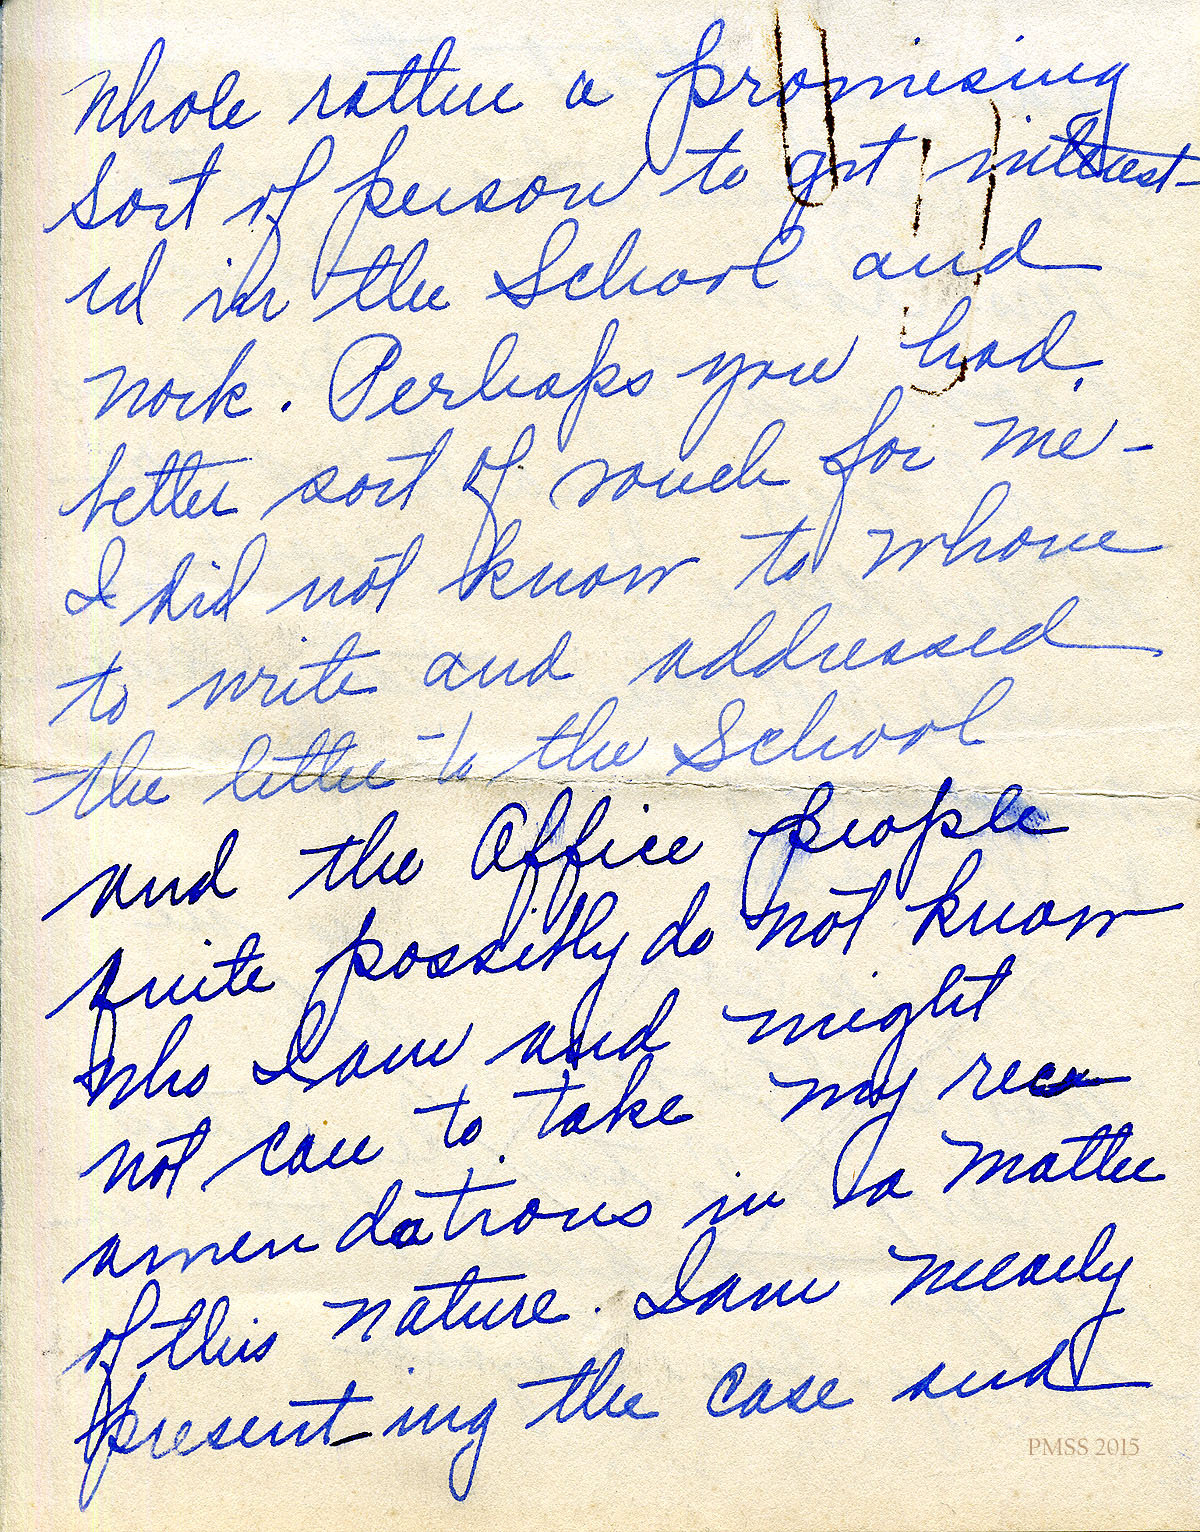 whole rather a promising
sort of person to get interest-
ed in the School and
work. Perhaps you had
better sort of vouch for me -
I did not know to whom
to write and addressed
the letter to the School
and the Office people
quite possibly do not know
who I am and might
not care to take my reco
amendations in a matter
of this nature. I am merely
presenting the case and
PMSS 2015